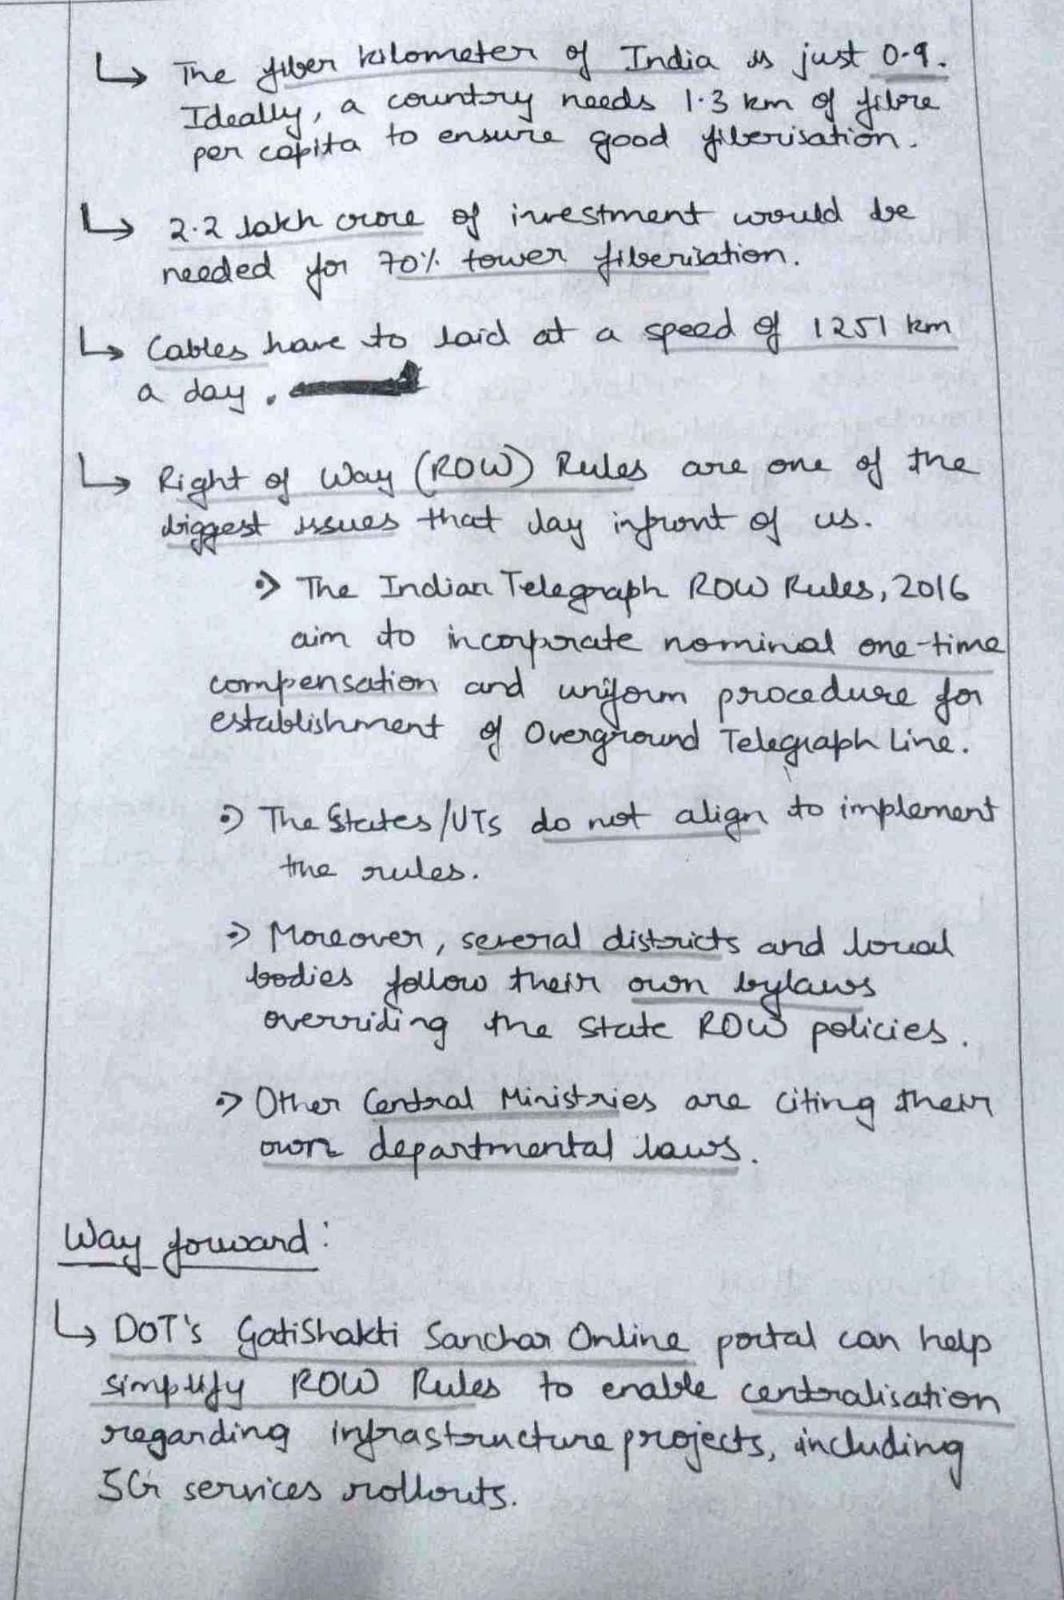 ↳ The fiber kilometer of India is just 0.9.
Ideally, a country needs 1.3 km of fibre
per capita to ensure good fiberisation.
↳ 2.2 lakh crore of investment would be
needed for 70% tower fiberisation.
↳ Cables have to laid at a speed of 1251 km
a day.
↳ Right of Way (ROW) Rules are one of the
biggest issues that lay infront of us.
•> The Indian Telegraph ROW Rules, 2016
aim to incorporate nominal one-time
compensation and uniform procedure for
establishment of Overground Telegraph Line.
•> The States/UTs do not align to implement
the rules.
•> Moreover, several districts and local
bodies follow their own bylaws
overriding the State ROW policies.
•> Other Central Ministries are citing their
own departmental laws.
Way forward:
↳ DOT's GatiShakti Sanchar Online portal can help
simplify ROW Rules to enable centralisation
regarding infrastructure projects, including
5G services rollouts.